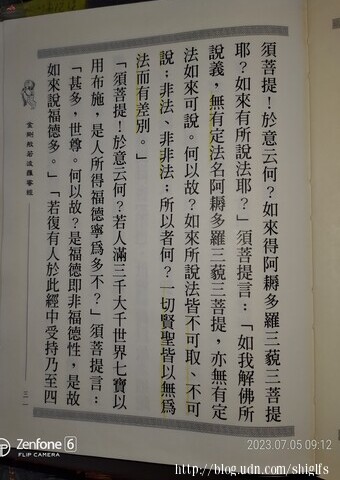 須菩提！於意云何？如來得阿耨多羅三藐三菩提
耶？如來有所說法耶？」須菩提言：「如我解佛所
說義，無有定法名阿耨多羅三藐三菩提，亦無有定
法如來可說。何以故？如來所說法皆不可取、不可
說；非法、非非法；所以者何？一切賢聖皆以無為
法而有差別。」
「須菩提！於意云何？若人滿三千大千世界七寶以
用布施，是人所得福德寧為多不？」須菩提言：
「甚多，世尊。何以故？是福德即非福德性，是故
如來說福德多。」「若復有人於此經中受持乃至四
金剛般若波羅蜜經
Zenfone 6
FLIP CAMERA
2023.07.05 09:12
http://blog.udn.com/shiglfs